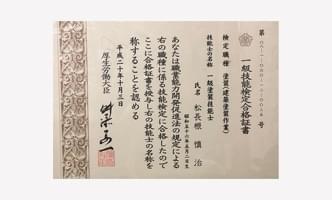 一級技能検定合格証書
検定職種 塗装(建築塗装作業)
技能士の名称 一級塗装技能士
氏名 松長根 慎治
昭和五十六年五月二日生
あなたは職業能力開発促進法の規定による
右の職種に係る技能検定に合格したので
ここに合格証書を授与し右の技能士の名称を
称することを認める
平成二十年十月三日
厚生労働大臣